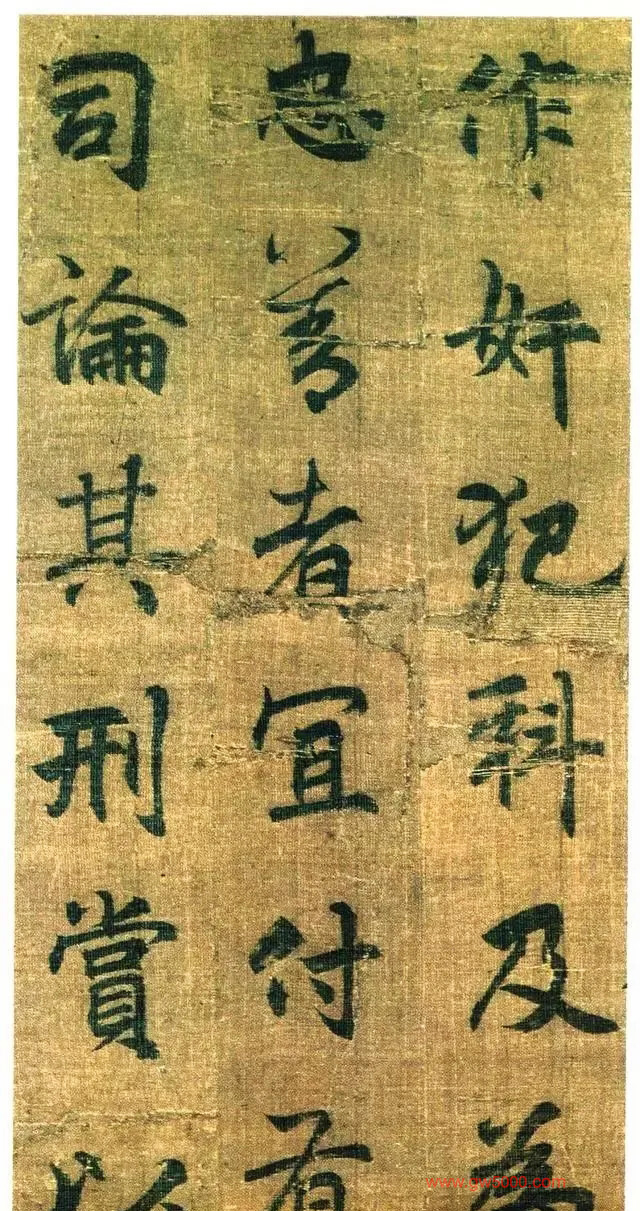 作奸犯科及為
忠善者冝付有
司論其刑賞以
www.gw5000.com